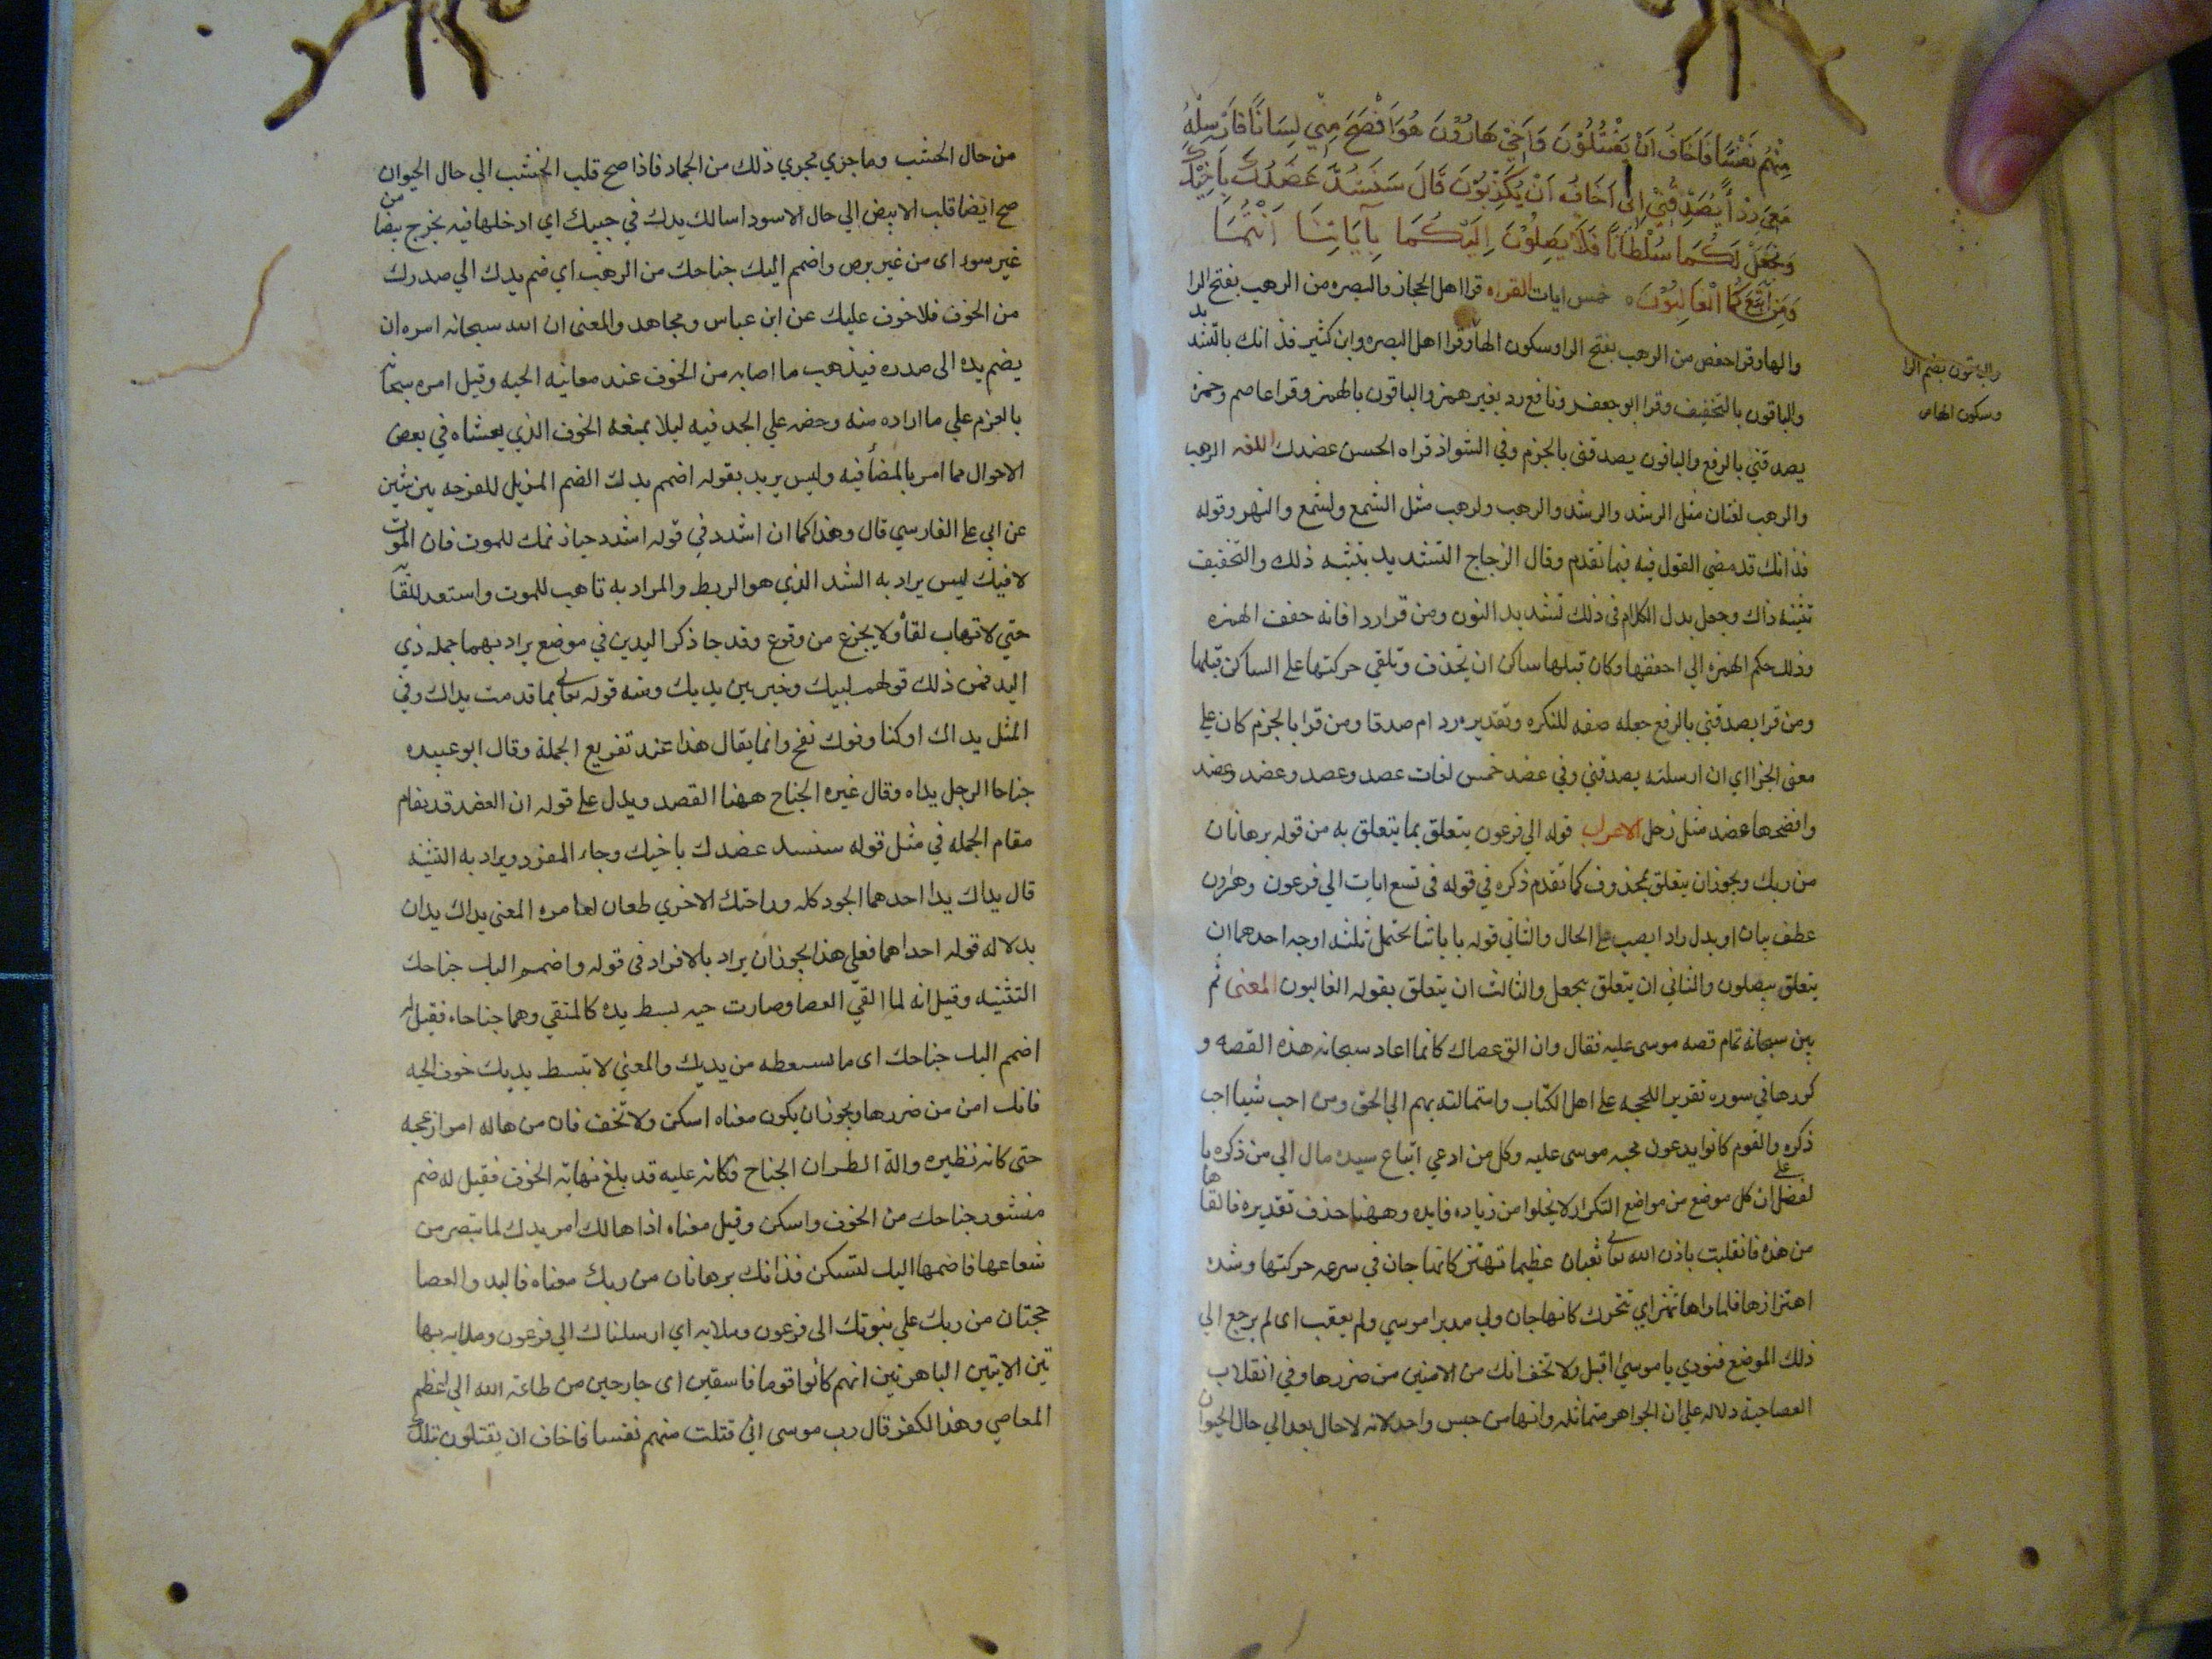 مِنْهُمْ نَفْسًا فَاَخَافُ اَنْ يَقْتُلُوْنَ وَاَخِيْ هَارُوْنَ هُوَ اَفْصَحُ مِنِّي لِسَانًا فَاَرْسِلْهُ
مَعِيَ رِدْأً يُصَدِّقُنِيْ اِنِّى اَخَافُ اَنْ يُكَذِّبُوْنَ قَالَ سَنَشُدُّ عَضُدَكَ بِاَخِيْكَ
وَنَجْعَلْ لَكُمَا سُلْطَانًا فَلَا يَصِلُوْنَ اِلَيْكُمَا بِآيَاتِنَا اَنْتُمَا
وَمَنِ اتَّبَعَكُمَا الْغَالِبُوْنَ ه خمس ايات القراه قرا اهل الحجاز والبصره من الرهب بفتح الرا
والها وقرا حفص من الرهب بفتح الرا وسكون الها وقرا اهل البصره وابن كثير فذانك بالتشديد
والباقون بالتخفيف وقرا ابو جعفر ونافع رد بغير همز والباقون بالهمز وقرا عاصم وحمزه
يصدقني بالرفع والباقون يصدقنى بالجزم وفي الشواذ قراه الحسن عضدك اللغه الرهب
والرهب لغتان مثل الرشد والرشد والرهب ولرهب مثل الشمع ولشمع والنهر وقوله
فذانك قد مضي القول فيه فيما تقدم وقال الزجاج التشديد بتثنيه ذلك والتخفيف
تثنيه ذاك وجعل بدل الكلام فى ذلك تشديد النون ومن قرا ردا فانه خفف الهمزه
وذلك حكم الهمزه الي اخففها وكان قبلها ساكن ان تحذف وتلقي حركتها على الساكن قبلها
ومن قرا يصدقني بالرفع جعله صفه للنكره وتقديره ردام صدقا ومن قرا بالجزم كان علي
معنى الجزا اي ان ارسلته يصدقني وفي عضد خمس لغات عضد وعضد وعضد وعضد
وافضحها عضد مثل رجل الاعراب قوله الي فرعون يتعلق بما يتعلق به من قوله برهانان
من ربك ويجوز ان يتعلق بمحذوف كما تقدم ذكره في قوله فى تسع ايات الي فرعون وهرون
عطف بيان او بدل ردا نصب على الحال والثاني قوله باياتنا يحتمل ثلثه اوجه احدهما ان
يتعلق بيصلون والثاني ان يتعلق بجعل والثالث ان يتعلق بقوله الغالبون المعنى ثم
بين سبحانه تمام قصه موسى عليه فقال وان الق عصاك كانما اعاد سبحانه هذه القصه و
كررها في سوره تقريرا للحجه على اهل الكتاب واستمالته بهم الي الحق ومن احب شيا احب
ذكره والقوم كانوا يدعون محبه موسى عليه وكل من ادعي اتباع سيده مال الي من ذكره با
لفضل علي ان كل موضع من مواضع التكرار لا يخلوا من زياده فايده وههنا حذف تقديره فالقاها
من هذه فانقلبت باذن الله تعالى ثعبان عظيما تهتز كانما جان في سرعه حركتها وشده
اهتزازها فلما راها تهتز اي تتحرك كانها جان ولي مدبرا موسي ولم يعقب اى لم يرجع الي
ذلك الموضع فنودي يا موسي اقبل ولا تخف انك من الامنين من ضررها وفي انقلاب
العصا حية دلاله علي ان الجواهر متماثله وانها من جنس واحد لانه لا حال بعد الي حال الحيوان
والباقون بضم الرا
وسكون الها ص
من حال الخشب وما جري مجري ذلك من الجماد فاذا صح قلب الخشب الي حال الحيوان
صح ايضا قلب الابيض الي حال الاسود اسالك يدك في جيبك اي ادخلها فيه بخرج بيضا من
غير سوء اى من غير برص واضمم اليك جناحك من الرهب اي ضم يدك الي صدرك
من الخوف فلا خوف عليك عن ابن عباس ومجاهد والمعنى ان الله سبحانه امره ان
يضم يده الى صدره فيذهب ما اصابه من الخوف عند معاينه الحيه وقيل امره سبحانه
بالعزم علي ما اراده منه وحضه علي الجد فيه ليلا يمنعه الخوف الذي يغشاه في بعض
الاحوال مما امر بالمضا فيه وليس يريد بقوله اضمم يدك الضم المزيل للفرجه بين شيين
عن ابي على الفارسي قال وهذا كما ان اشدد في قوله اشدد حيازيمك للموت فان الموت
لاقيك ليس يراد به الشد الذي هو الربط والمراد به تاهب للموت واستعد للقا
حتي لا تهاب لقا ولا يجزع من وقوع وقد جا ذكر اليدين في موضع يراد بهما جمله ذي
اليد فمن ذلك قولهم لبيك وخير بين يديك ومنه قوله تعالى بما قدمت يداك وفي
المثل يداك اوكتا وفوك نفخ وانما يقال هذا عند تقريع الجملة وقال ابو عبيده
جناحا الرجل يداه وقال غيره الجناح ههنا القصد ويدل على قوله ان العضد قد يقام
مقام الجمله في مثل قوله سنشد عضدك باخيك وجاء المفرد ويراد به التثنيه
قال يداك يدا احدهما الجود كله وراحتك الاخري طعان المعنى يداك يدان
بدلاله قوله احداهما فعلي هذا يجوز ان يراد بالافراد فى قوله واضمم اليك جناحك
التثنيه وقيل انه لما القي العصا وصارت حيه بسط يده كالمتقي وهما جناحاه فقيل له
اضمم اليك جناحك اى ما بسطه من يديك والمعني لا تبسط يديك خوف الحيه
فانك امن من ضررها ويجوز ان يكون معناه اسكن ولا تخف فان من هاله امر ازعجه
حتى كانه نظيره والة الطيران الجناح فكانه عليه قد بلغ نهايه الخوف فقيل له ضم
منشور جناحك من الخوف واسكن وقيل معناه اذا هالك امر يدك لما تبصر من
شعاعها فاضمها اليك لتسكن فذانك برهانان من ربك معناه فاليد والعصا
حجتان من ربك علي نبوتك الى فرعون وملايه اي ارسلناك الي فرعون وملايه بها
تين الايتين الباهرتين انهم كانوا قوما فاسقين اى خارجين من طاعة الله الي اعظم
المعاصي وهذا الكفر قال رب موسى اني قتلت منهم نفسا فاخاف ان يقتلون بتلك